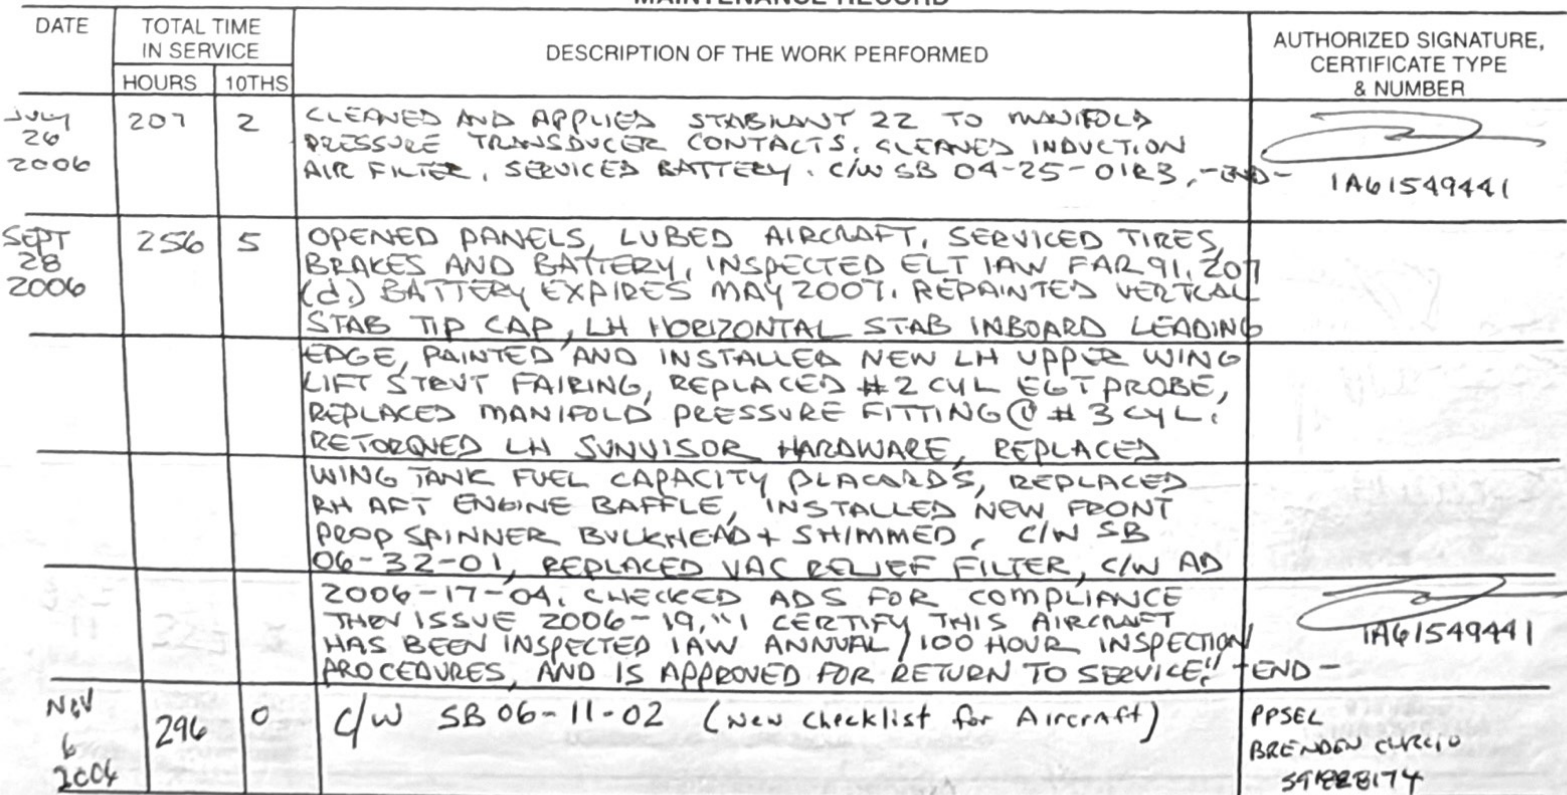 MAINTENANCE RECORD
DATE
TOTAL TIME
IN SERVICE
HOURS 10THS
DESCRIPTION OF THE WORK PERFORMED
AUTHORIZED SIGNATURE,
CERTIFICATE TYPE
& NUMBER
JULY
26
2006
207 2
CLEANED AND APPLIED STABILANT 22 TO MANIFOLD
PRESSURE TRANSDUCER CONTACTS. CLEANED INDUCTION
AIR FILTER, SERVICED BATTERY. C/W SB 04-25-01R3, -END-
IA61549441
SEPT
28
2006
256 5
OPENED PANELS, LUBED AIRCRAFT, SERVICED TIRES,
BRAKES AND BATTERY, INSPECTED ELT IAW FAR 91.207
(d.) BATTERY EXPIRES MAY 2007. REPAINTED VERTICAL
STAB TIP CAP, LH HORIZONTAL STAB INBOARD LEADING
EDGE, PAINTED AND INSTALLED NEW LH UPPER WING
LIFT STRUT FAIRING, REPLACED #2 CYL EGT PROBE,
REPLACED MANIFOLD PRESSURE FITTING @ #3 CYL.
RETORQUED LH SUNVISOR HARDWARE, REPLACED
WING TANK FUEL CAPACITY PLACARDS, REPLACED
RH AFT ENGINE BAFFLE, INSTALLED NEW FRONT
PROP SPINNER BULKHEAD + SHIMMED, C/W SB
06-32-01, REPLACED VAC RELIEF FILTER, C/W AD
2006-17-04. CHECKED ADS FOR COMPLIANCE
THRU ISSUE 2006-19, "I CERTIFY THIS AIRCRAFT
HAS BEEN INSPECTED IAW ANNUAL/100 HOUR INSPECTION
PROCEDURES, AND IS APPROVED FOR RETURN TO SERVICE." -END-
IA61549441
Nov
6
2006
296 0
C/W SB 06-11-02 (New Checklist for Aircraft)
PPSEL
BRENDON CURCIO